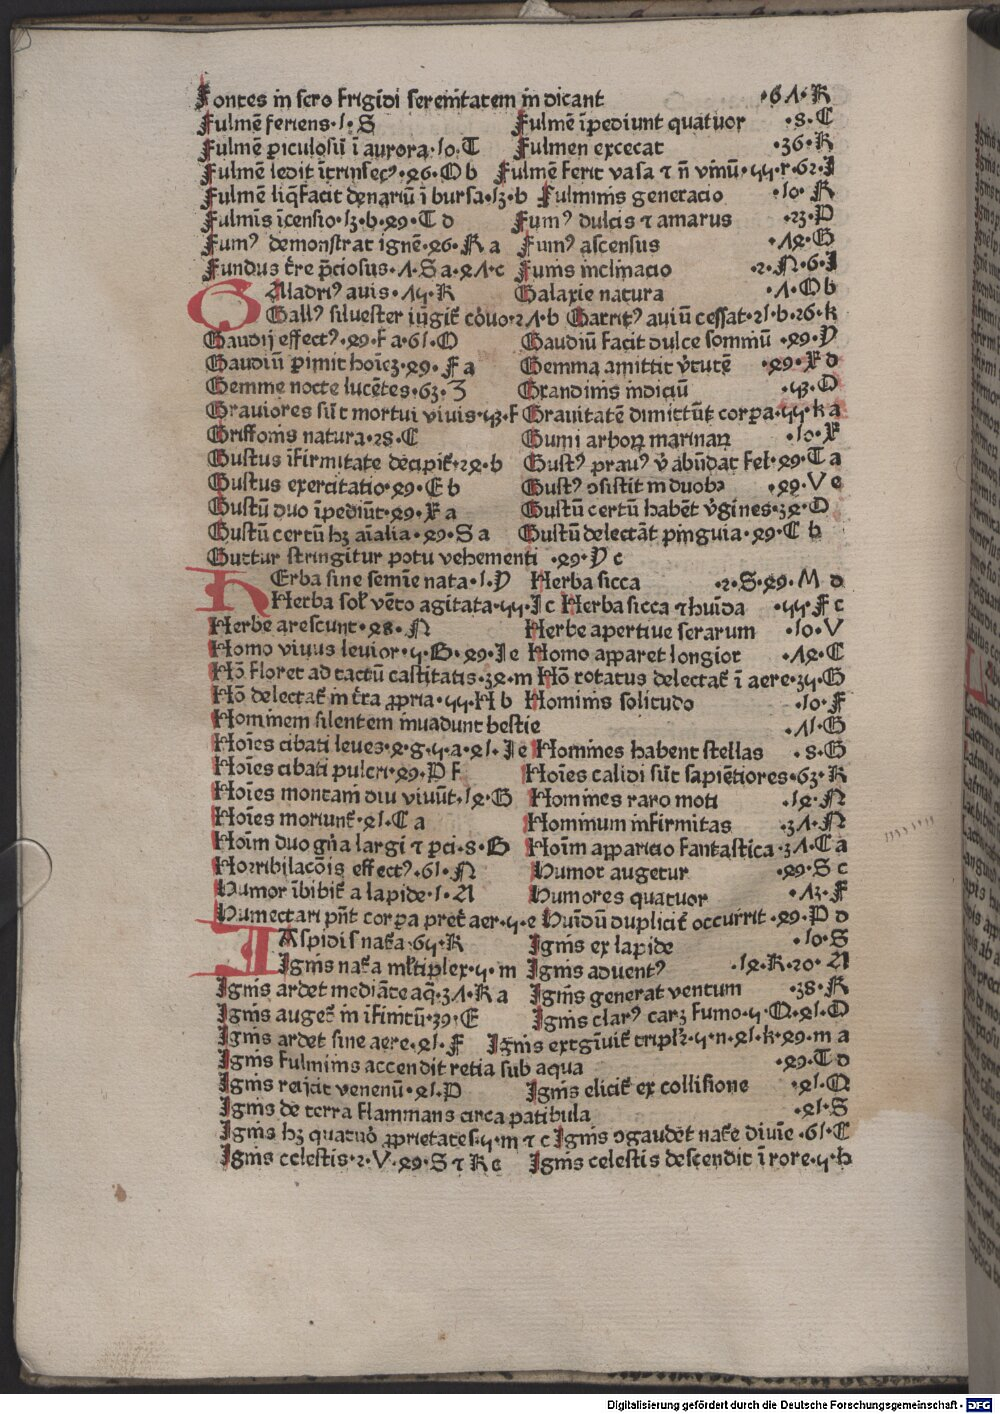 Fontes in sero frigidi serenitatem indicant ·61·R
Fulmē feriens·1·S Fulmē īpediunt quatuor ·8·C
Fulmē piculosū ī aurora·10·T Fulmen excecat ·36·R
Fulmē ledit ītrinsecꝰ·46·O b Fulmē ferit vasa ⁊ n̄ vinū·55·r·62·I
Fulmē liq̄facit denariū ī bursa·13·b Fulminis generacio ·10·R
Fulmīs īcensio·13·b·49·T d Fumꝰ dulcis ⁊ amarus ·23·P
Fumꝰ demonstrat ignē·46·R a Fumꝰ ascensus ·14·G
Fundus t̄re p̄ciosus·1·S a·41·c Funis inclinacio ·2·N·6·I
GAlladriꝰ auis·15·R Galaxie natura ·1·O b
Gallꝰ siluester iūgit᷑ cōuo·21·b Garritꝰ auiū cessat·21·b·26·k
Gaudij effectꝰ·49·F a·61·O Gaudiū facit dulce somniū ·49·Y
Gaudiū pimit hoīeꝫ·49·F a Gemma amittit v̄tutē ·49·X d
Gemme nocte lucētes·63·Z Grandinis indiciū ·53·O
Grauiores sūt mortui viuis·53·F Grauitatē dimittūt corpa·55·k a
Griffonis natura·28·C Gumi arboꝝ marinaꝝ ·10·X
Gustus īfirmitate decipit᷑·24·b Gustꝰ prauꝰ v̄ abūdat fel·49·T a
Gustus exercitatio·49·E b Gustꝰ ↄsistit in duobꝫ ·49·V e
Gustū duo īpediūt·49·X a Gustū certū habēt v̄gines·34·O
Gustū certū hꝫ aīalia·49·S a Gustū delectāt pinguia·49·C b
Guttur stringitur potu vehementi ·49·Y c
HErba sine semīe nata·1·Y Herba sicca ·2·S·49·M d
Herba sol᷑ vēto agitata·55·I c Herba sicca ⁊ huīda ·55·F c
Herbe arescunt·48·N Herbe apertiue serarum ·10·V
Homo viuus leuior·5·B·49·I e Homo apparet longior ·14·C
Hō floret ad tactū castitatis·34·m Hō rotatus delectat᷑ ī aere·35·G
Hō delectat᷑ in t̄ra ꝓpria·55·H b Hominis solitudo ·10·F
Hominem silentem inuadunt bestie ·15·G
Hoīes cibati leues·4·g·5·a·41·I e Homines habent stellas ·8·G
Hoīes cibati pulcri·49·P f Hoīes calidi sūt sapiētiores·63·R
Hoīes montani diu viuūt·14·G Homines raro moti ·14·N
Hoīes moriunt᷑·41·C a Hominum infirmitas ·31·N
Hoīm duo gn̄a largi ⁊ pci·8·B Hoīm apparicio fantastica·31·C a
Horribilacōis effectꝰ·61·N Humor augetur ·49·S c
Humor ībibit᷑ a lapide·1·A Humores quatuor ·13·F
Humectari pn̄t corpa pret᷑ aer·5·e Huīdū duplicit᷑ occurrit·49·P d
IAspidis nat᷑a·65·R Ignis ex lapide ·10·S
Ignis nat᷑a ml̄tiplex·5·m Ignis aduentꝰ ·14·R·20·A
Ignis ardet mediāte aq̄·31·R a Ignis generat ventum ·38·R
Ignis auget᷑ in īfinitū·39·E Ignis clarꝰ carꝫ fumo·5·Q·41·O
Ignis ardet sine aere·41·F Ignis extgīuit᷑ triplr̄·5·n·41·k·49·m a
Ignis fulminis accendit retia sub aqua ·49·T d
Ignis reijcit venenū·41·P Ignis elicit᷑ ex collisione ·41·Q
Ignis de terra flammans circa patibula ·41·S
Ignis hꝫ quatuō ꝓprietates·5·m ⁊ c Ignis ↄgaudet nat᷑e diuīe·61·C
Ignis celestis·2·V·49·S ⁊ R c Ignis celestis descendit ī rore·5·h
Digitalisierung gefördert durch die Deutsche Forschungsgemeinschaft - DFG